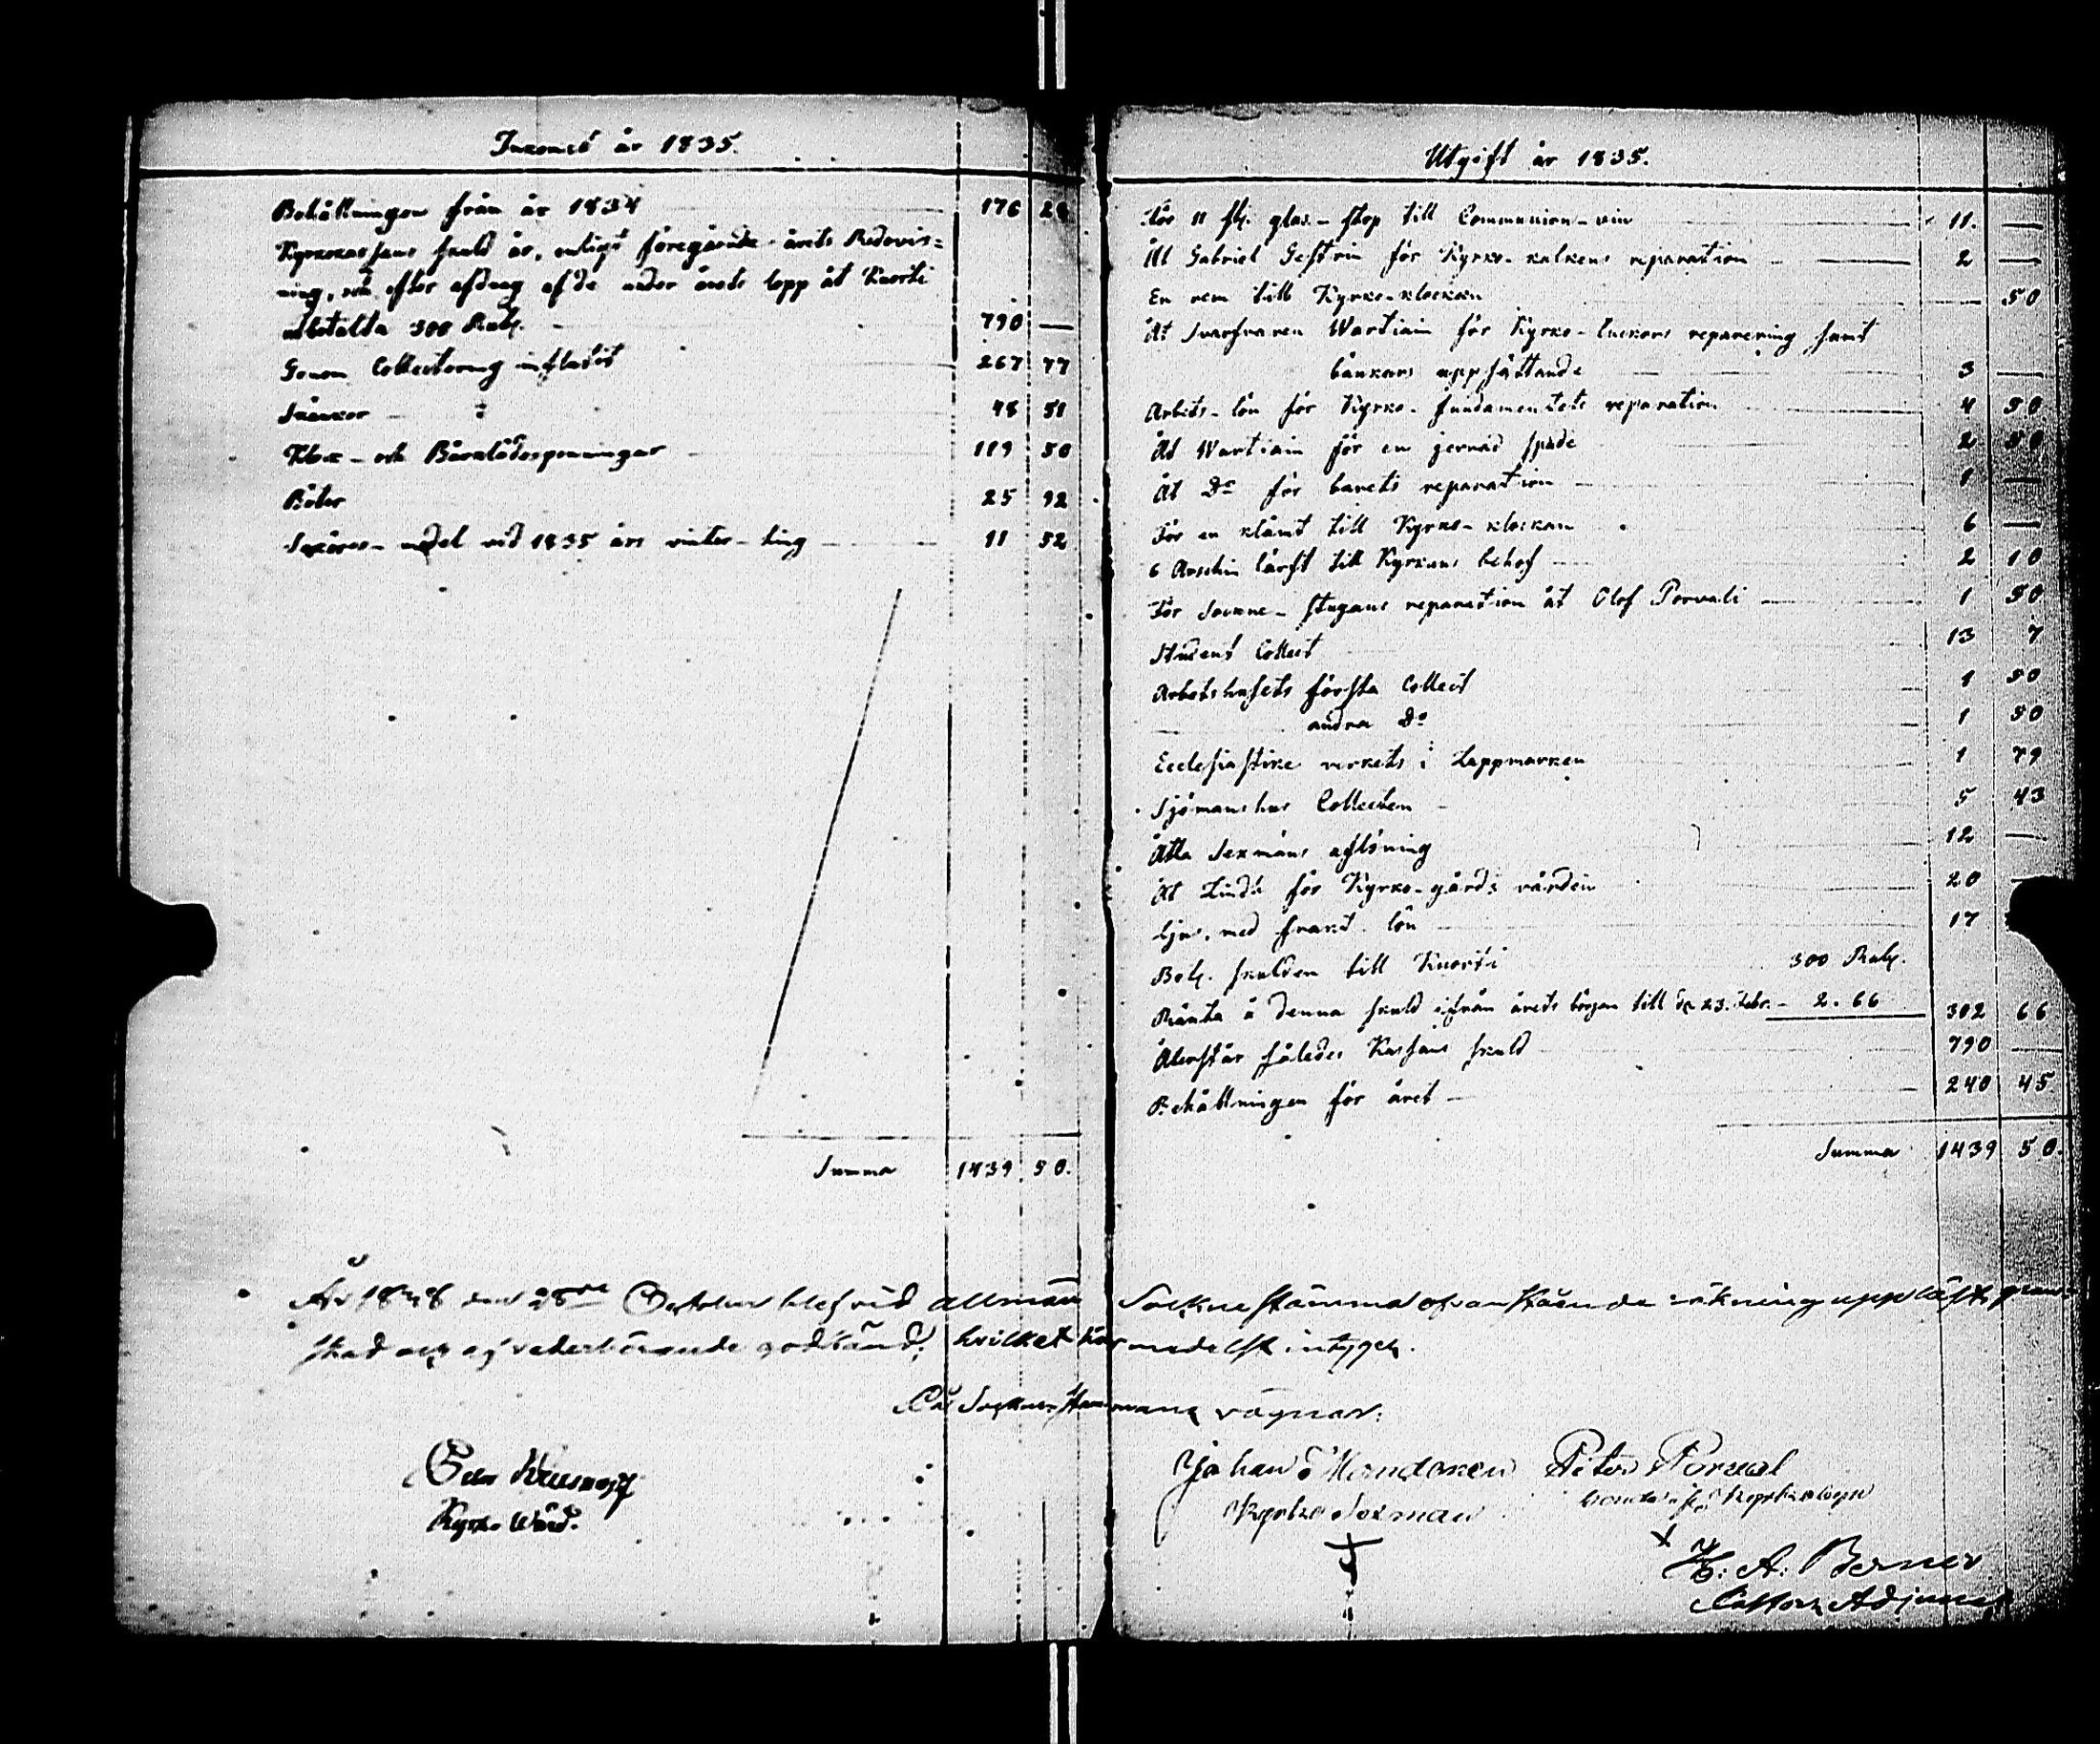 Inkomst år 1835.
Behållningen från år 1834 176 28
Kyrkokassans skuld är, enligt föregående årets Redovis=
ning, och efter afdrag af de under årets lopp åt Knorti
utbetalta 300 Rub. 790 —
Genom Collectering influtit 267 77
Skänker 48 51
Klock- och Bårklädespenningar 119 50
Böter 25 92
Sexörs-medel vid 1835 års vinter-ting 11 52
Summa 1439 50.
Utgift år 1835.
För 11 st. glas-stop till Communion-vin 11. —
Åt Gabriel Gestrin för Kyrko-kalkens reparation 2 —
En rem till Kyrko-klockan — 50
Åt Svarfvaren Wartiain för Kyrko-luckors reparering samt
bänkars uppsättande 3 —
Arbets-lön för Kyrko-fundamentets reparation 4 50
Åt Wartiain för en jernad spade 2 50
Åt D:o för barets reparation 1 —
För en klämt till Kyrko-klockan 6 —
6 Arschin lärft till Kyrkans behof 2 10
För Sockne-stugans reparation åt Olof Porvali 1 50
Student Collect 13 7
Arbetshusets första Collect 1 50
andra D:o 1 50
Ecclesiastike verkets i Lappmarken 1 79
Sjömanshus Collecten 5 43
Åtta Sexmäns aflöning 12 —
Åt Lindh för Kyrko-gårds vården 20 —
Ljus, med frakt lön 17
Bet. skulden till Knorti 300 Rub.
Ränta å denna skuld ifrån årets början till d. 23. Febr. — 2. 66 302 66
Återstår således Kassans skuld 790 —
Behållningen för året — 240 45
Summa 1439 50.
År 1848 den 28de October blef vid allmän Sockne stämma ofvanstående räkning uppläst, gran-
skad och af vederbörande godkänd; hvilket här medelst intygets.
På Sockne stämmans vägnar:
Kyrko Wärd.
Johan Mandonen Peter Porval
Kyrko Sexman
H. A. Berner
Pastors Adjunct